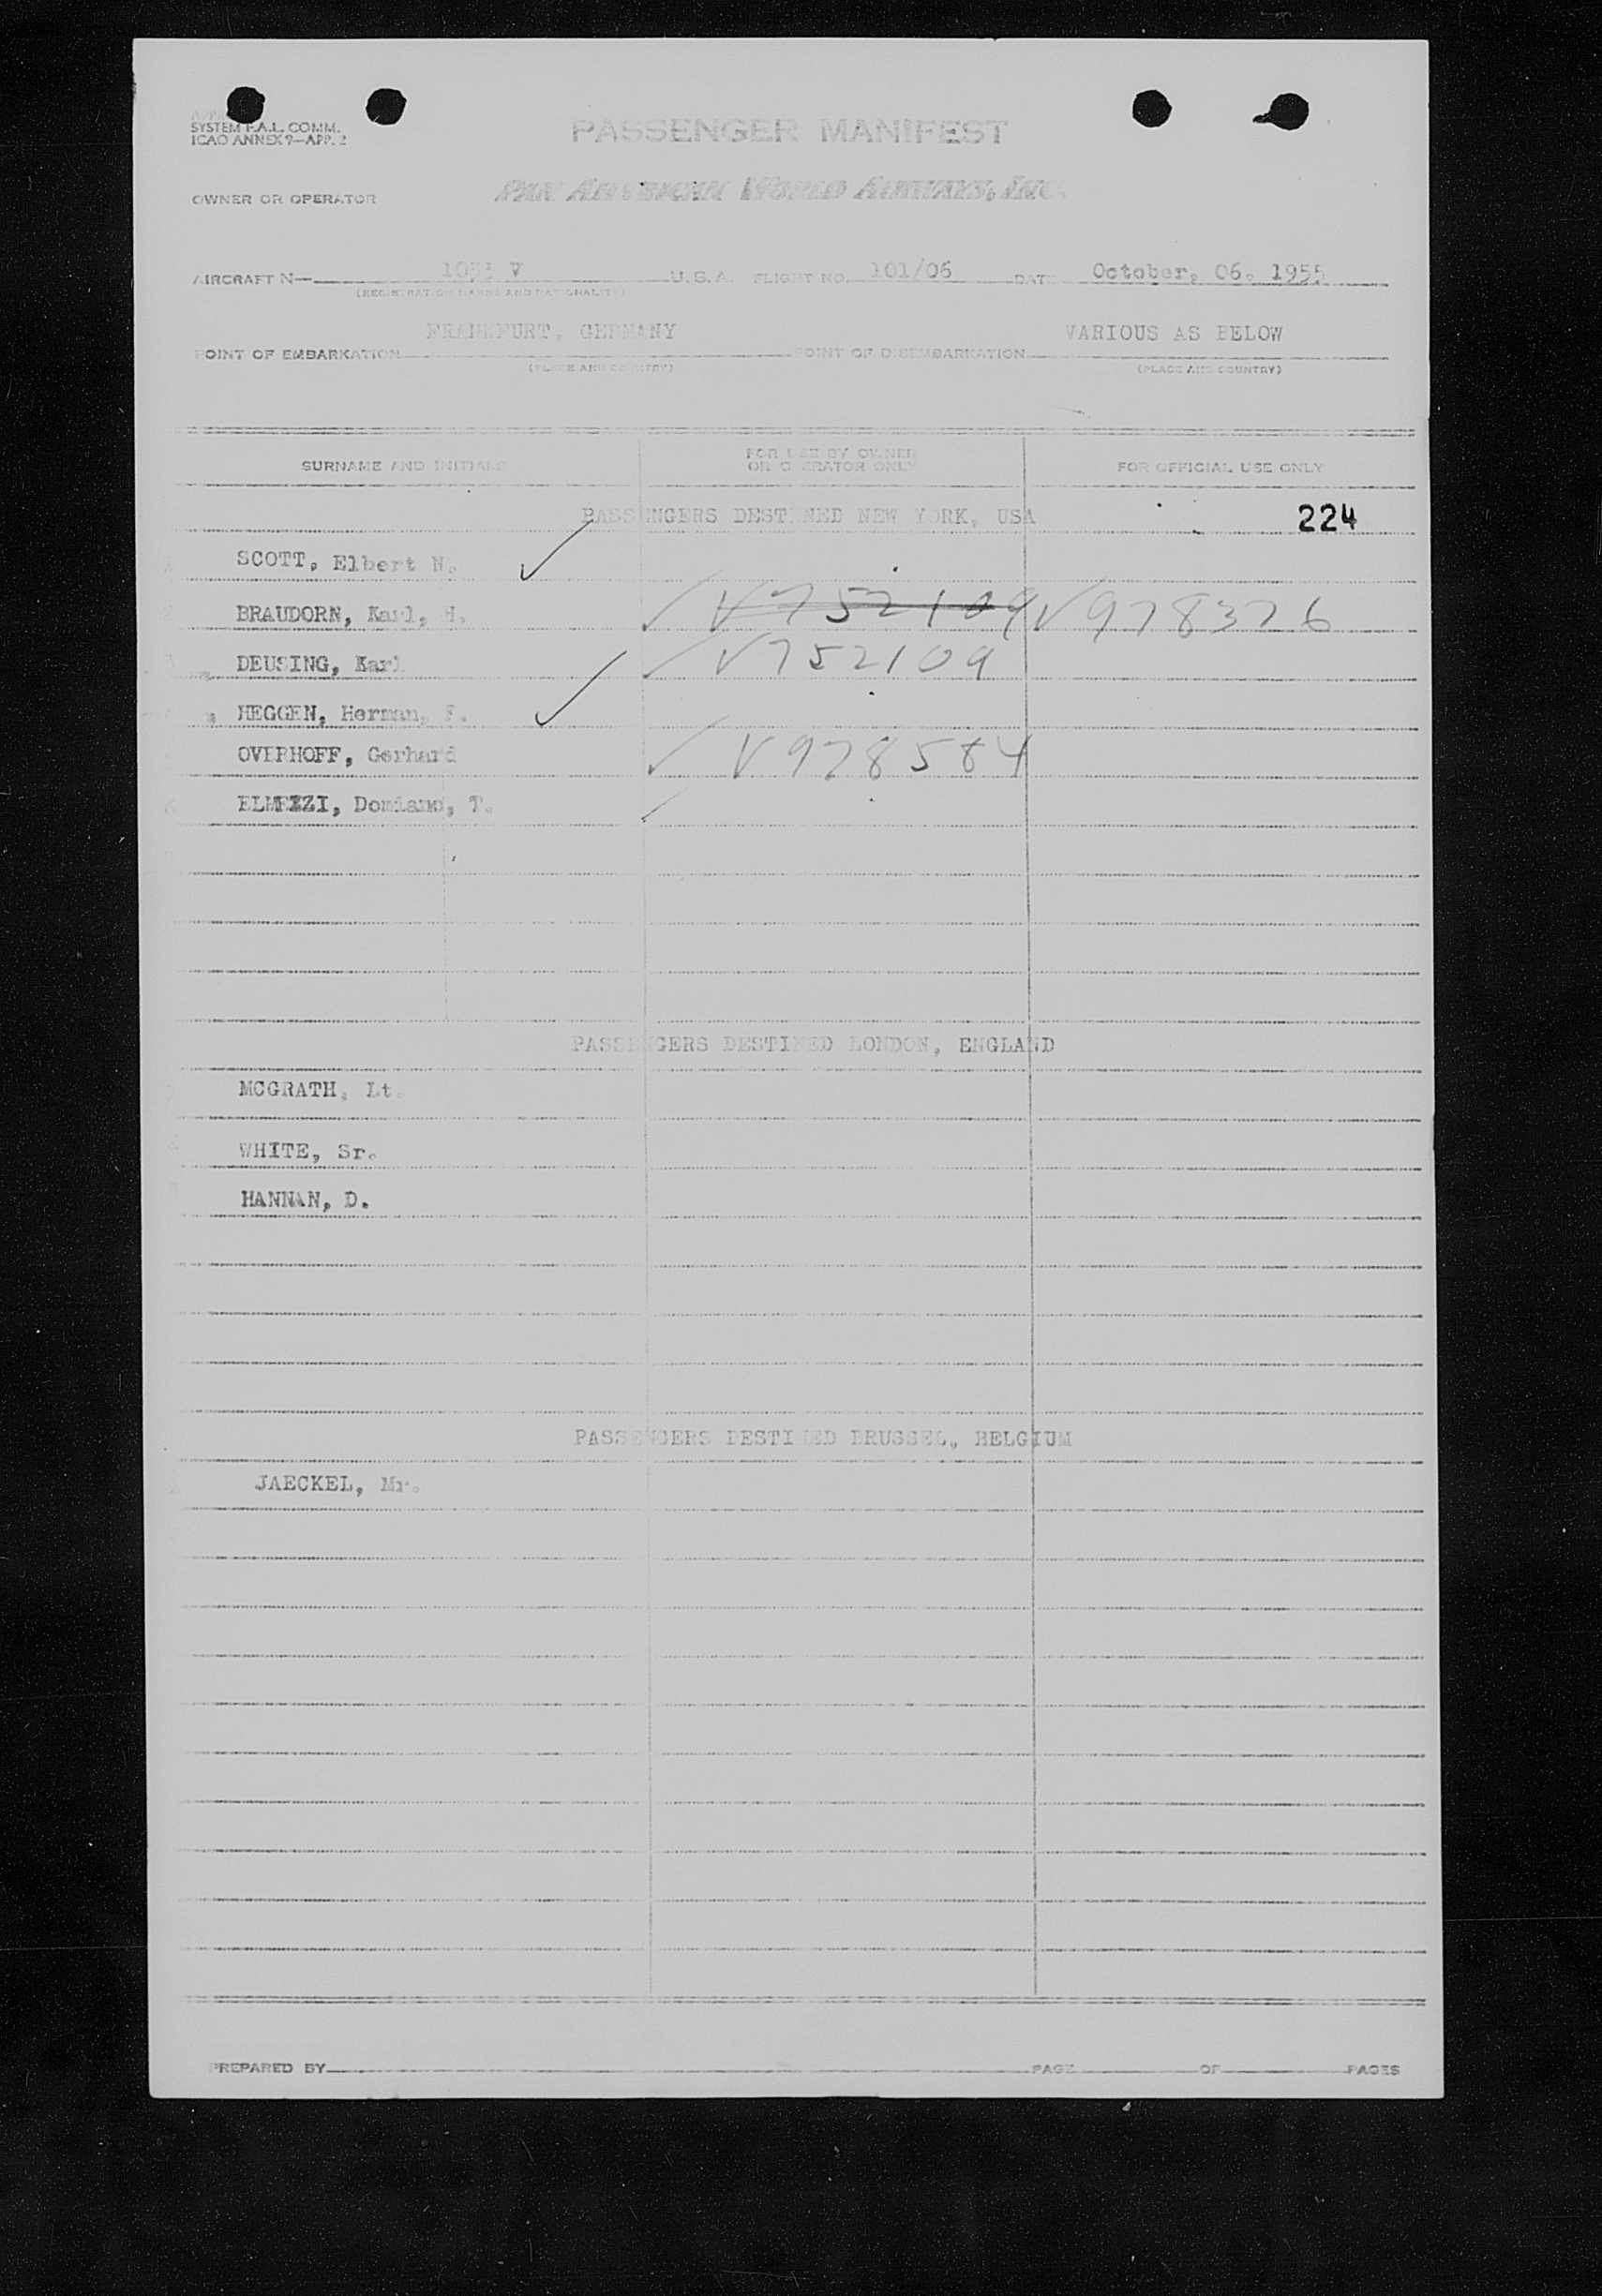 SYSTEM F.A.L. COMM.
ICAO ANNEX 9—APP. 2
PASSENGER MANIFEST
OWNER OR OPERATOR PAN AMERICAN WORLD AIRWAYS, INC.
AIRCRAFT N— V U.S.A. FLIGHT NO. 101/06 DATE October, 06, 1955
(REGISTRATION MARKS AND NATIONALITY)
FRANKFURT, GERMANY VARIOUS AS BELOW
POINT OF EMBARKATION POINT OF DISEMBARKATION
(PLACE AND COUNTRY) (PLACE AND COUNTRY)
SURNAME AND INITIALS FOR USE BY OWNER OR OPERATOR ONLY FOR OFFICIAL USE ONLY
PASSENGERS DESTINED NEW YORK, USA 224
SCOTT, Elbert N. ✓
BRAUDORN, Karl, H. ✓ V752109 V978376
DEUSING, Karl ✓ V752109
HEGGEN, Herman, F. ✓
OVERHOFF, Gerhard ✓ V978584
Domiano, T. ✓
PASSENGERS DESTINED LONDON, ENGLAND
MCGRATH, Lt.
WHITE, Sr.
HANNAN, D.
PASSENGERS DESTINED BRUSSEL, BELGIUM
JAECKEL, Mr.
PREPARED BY PAGE OF PAGES